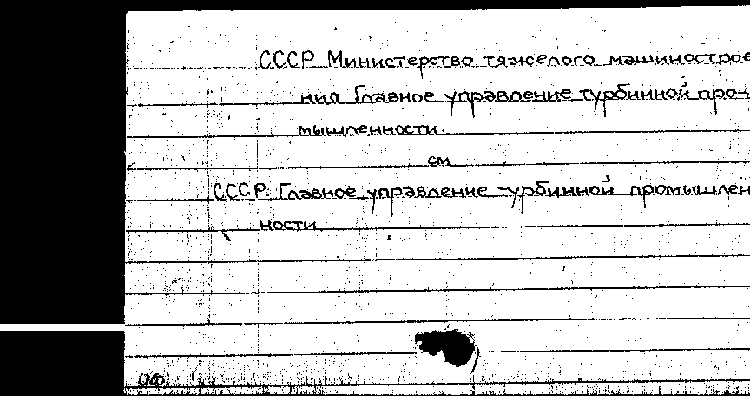 СССР Министерство тяжелого машинострое
ния Главное управление турбинной про-
мышленности.
см
СССР. Главное управление турбинной промышлен
ности